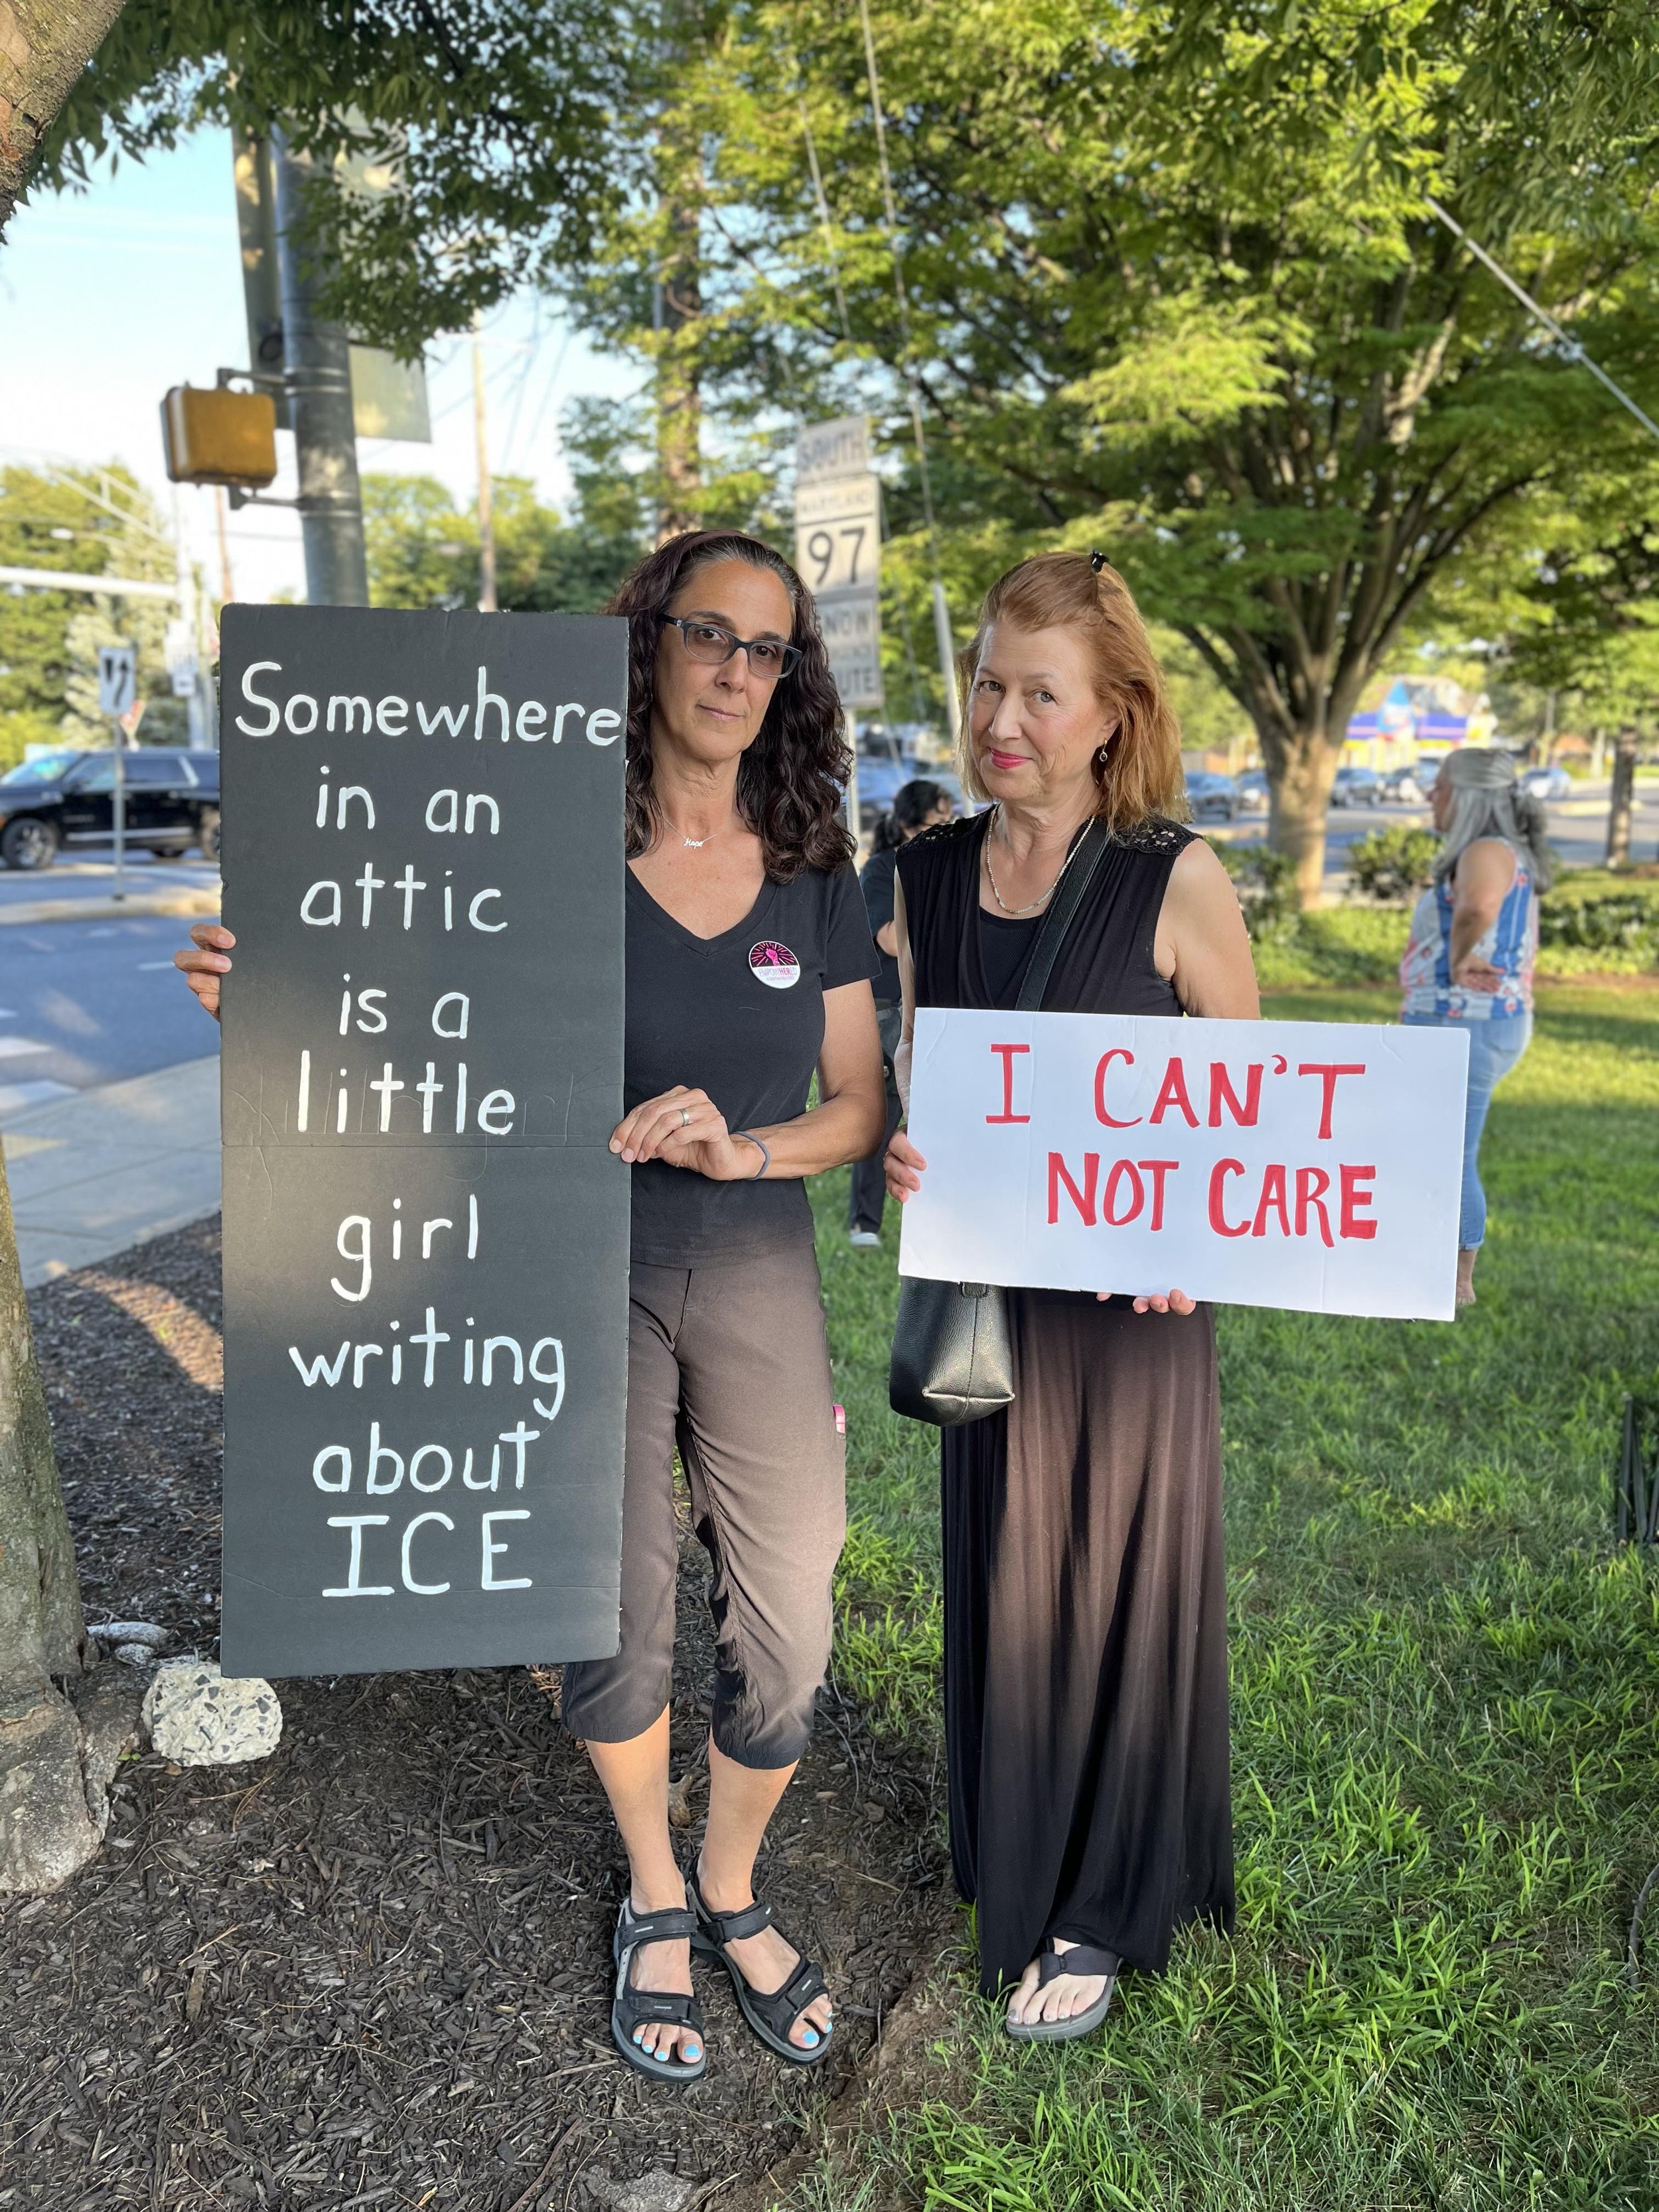 Somewhere
in an
attic
is a
little
girl
writing
about
ICE
I CAN'T
NOT CARE
SOUTH
MARYLAND
97
SNOW
Hope